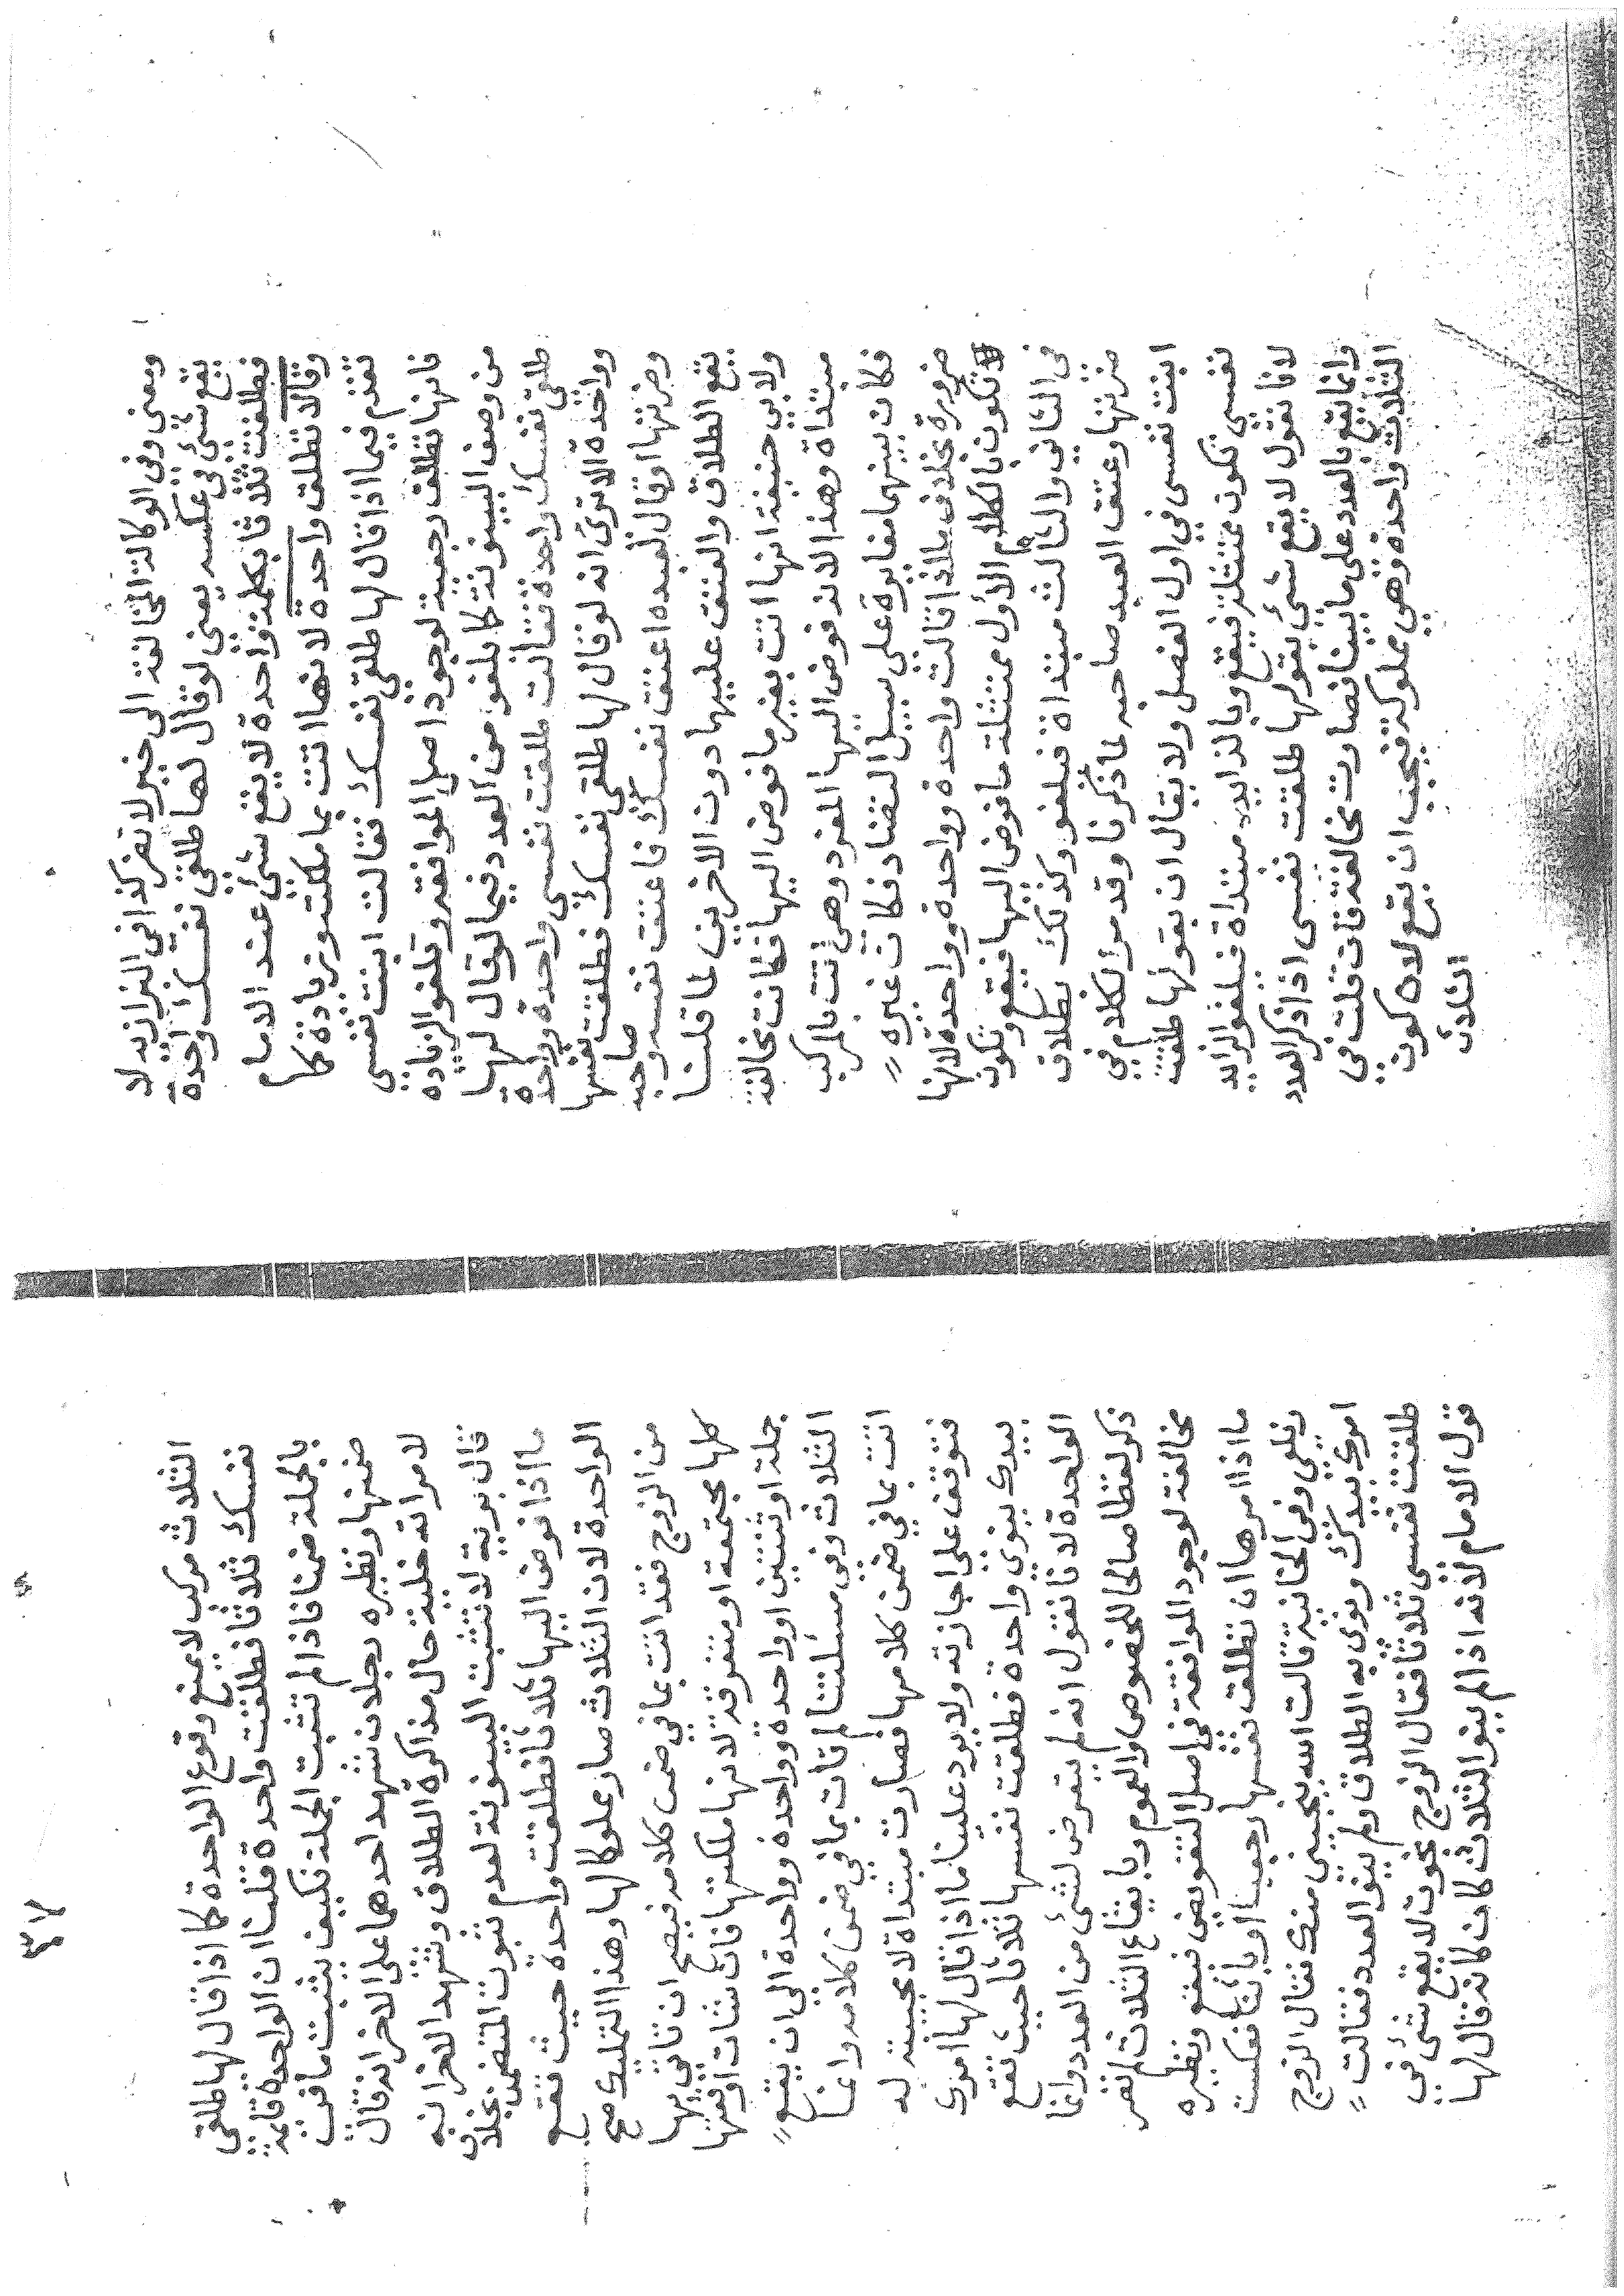 ومعنى وفي الوكالة المخالفة الى خير لا تضر كذا في البزازيه لا
يقع شئ في عكسه يعنى لو قال لها طلقي نفسك واحدة
فطلقت ثلاثا بكلمة واحدة لا يقع شئ عند الامام
وقالا تطلق واحدة لانها اتت بما ملكته وزيادة كما
تقدم فيما اذا قال لها طلقي نفسك فقالت ابنت نفسي
فانها تطلق رجعية لوجود اصل الموافقة وتلغو الزياده
من وصف البينونة كما يلغو من العدد فيما لو قال لها
طلقي نفسك واحدة فقالت طلقت نفسي واحدة وواحدة
وواحدة الا ترى انه لو قال لها طلقي نفسك فطلقت نفسها
وضرتها او قال لعبده اعتق نفسك فاعتق نفسه وصاحبه
يقع الطلاق والعتق عليهما دون الاخرين لما قلنا
ولابي حنيفة انها اتت بغير ما فوض اليها فكانت مخالفة
مبتداة وهذا لانه فوض اليها المفرد وهي اتت بالمركب
فكان بينهما مغايرة على سبيل التضاد فكان غيره
ضرورة بخلاف ما اذا قالت واحدة وواحدة وواحدة لانها
لا تكون بالكلام الاول ممتثلة ما فوض اليها فيقع وتكون
في الثاني والثالث مبتداة فيلغو وكذلك بطلاق
ضرتها وعتق العبد صاحبه لما ذكرنا وقد مر الكلام في
ابنت نفسي في اول الفصل ولا يقال ان بقولها طلقت
نفسي تكون ممتثلة فيقع وبالزايد مبتداة فيلغو الزايد
لانا نقول لا يقع شئ بقولها طلقت نفسي اذا ذكر العدد
وانما يقع بالعدد على ما بينا فصارت مخالفة فان قلت في
الثلاث واحدة وهي مملوكة فيجب ان يقع لان كون
الثلاث
الثلاث مركب لا يمنع وقوع الواحدة كما اذا قال لها طلقي
نفسك ثلاثا فطلقت واحدة قلنا ان الواحدة قائمة
بالجملة ضمنا فاذا لم تثبت الجملة فكيف يثبت ما في
ضمنها ونظيره رجلان شهد احدهما على الاخر انه قال
لامراته خلية حال مذاكرة الطلاق وشهد الاخر انه
قال برية لا تثبت البينونة لعدم ثبوت المتضمن بخلاف
ما اذا فوض اليها ثلاثا فطلقت واحدة حيث تقع
الواحدة لان الثلاث صار مملوكا لها وهذا التمليك مع
من الزوج فقد اتت بما في ضمن كلامه فيصح ان تاتي بها
كلها مجتمعة او متفرقة لانها ملكتها فان شات اوقعتها
جملة او ثنتين او واحدة وواحدة وواحدة الى ان يقع
الثلاث وفي مسئلتنا لم تات بما في ضمن كلامه وانما
اتت بما في ضمن كلامها فصارت مبتداة لا مجيبة له
فتوقف على اجازته ولا يرد علينا ما اذا قال لها امرك
بيدك ينوي واحدة فطلقت نفسها ثلاثا حيث تقع
الواحدة لانا نقول انه لم يتعرض لشئ من العدد وانما
ذكر لفظا صالحا للخصوص والعموم وبايقاع الثلاث لم تصر
مخالفة لوجود الموافقة في اصل التفويض فتقع ونظيره
ما اذا امرها ان تطلق نفسها رجعيا او بائنا فعكست
وتلغي وفي الخانية قالت اللهم نجني منك فقال الزوج
امرك بيدك ونوى به الطلاق ولم ينو العدد فقالت
طلقت نفسي ثلاثا فقال الزوج نجوت لا يقع شئ في
قول الامام لانه اذا لم ينو الثلاث كان كانه قال لها
٣٧